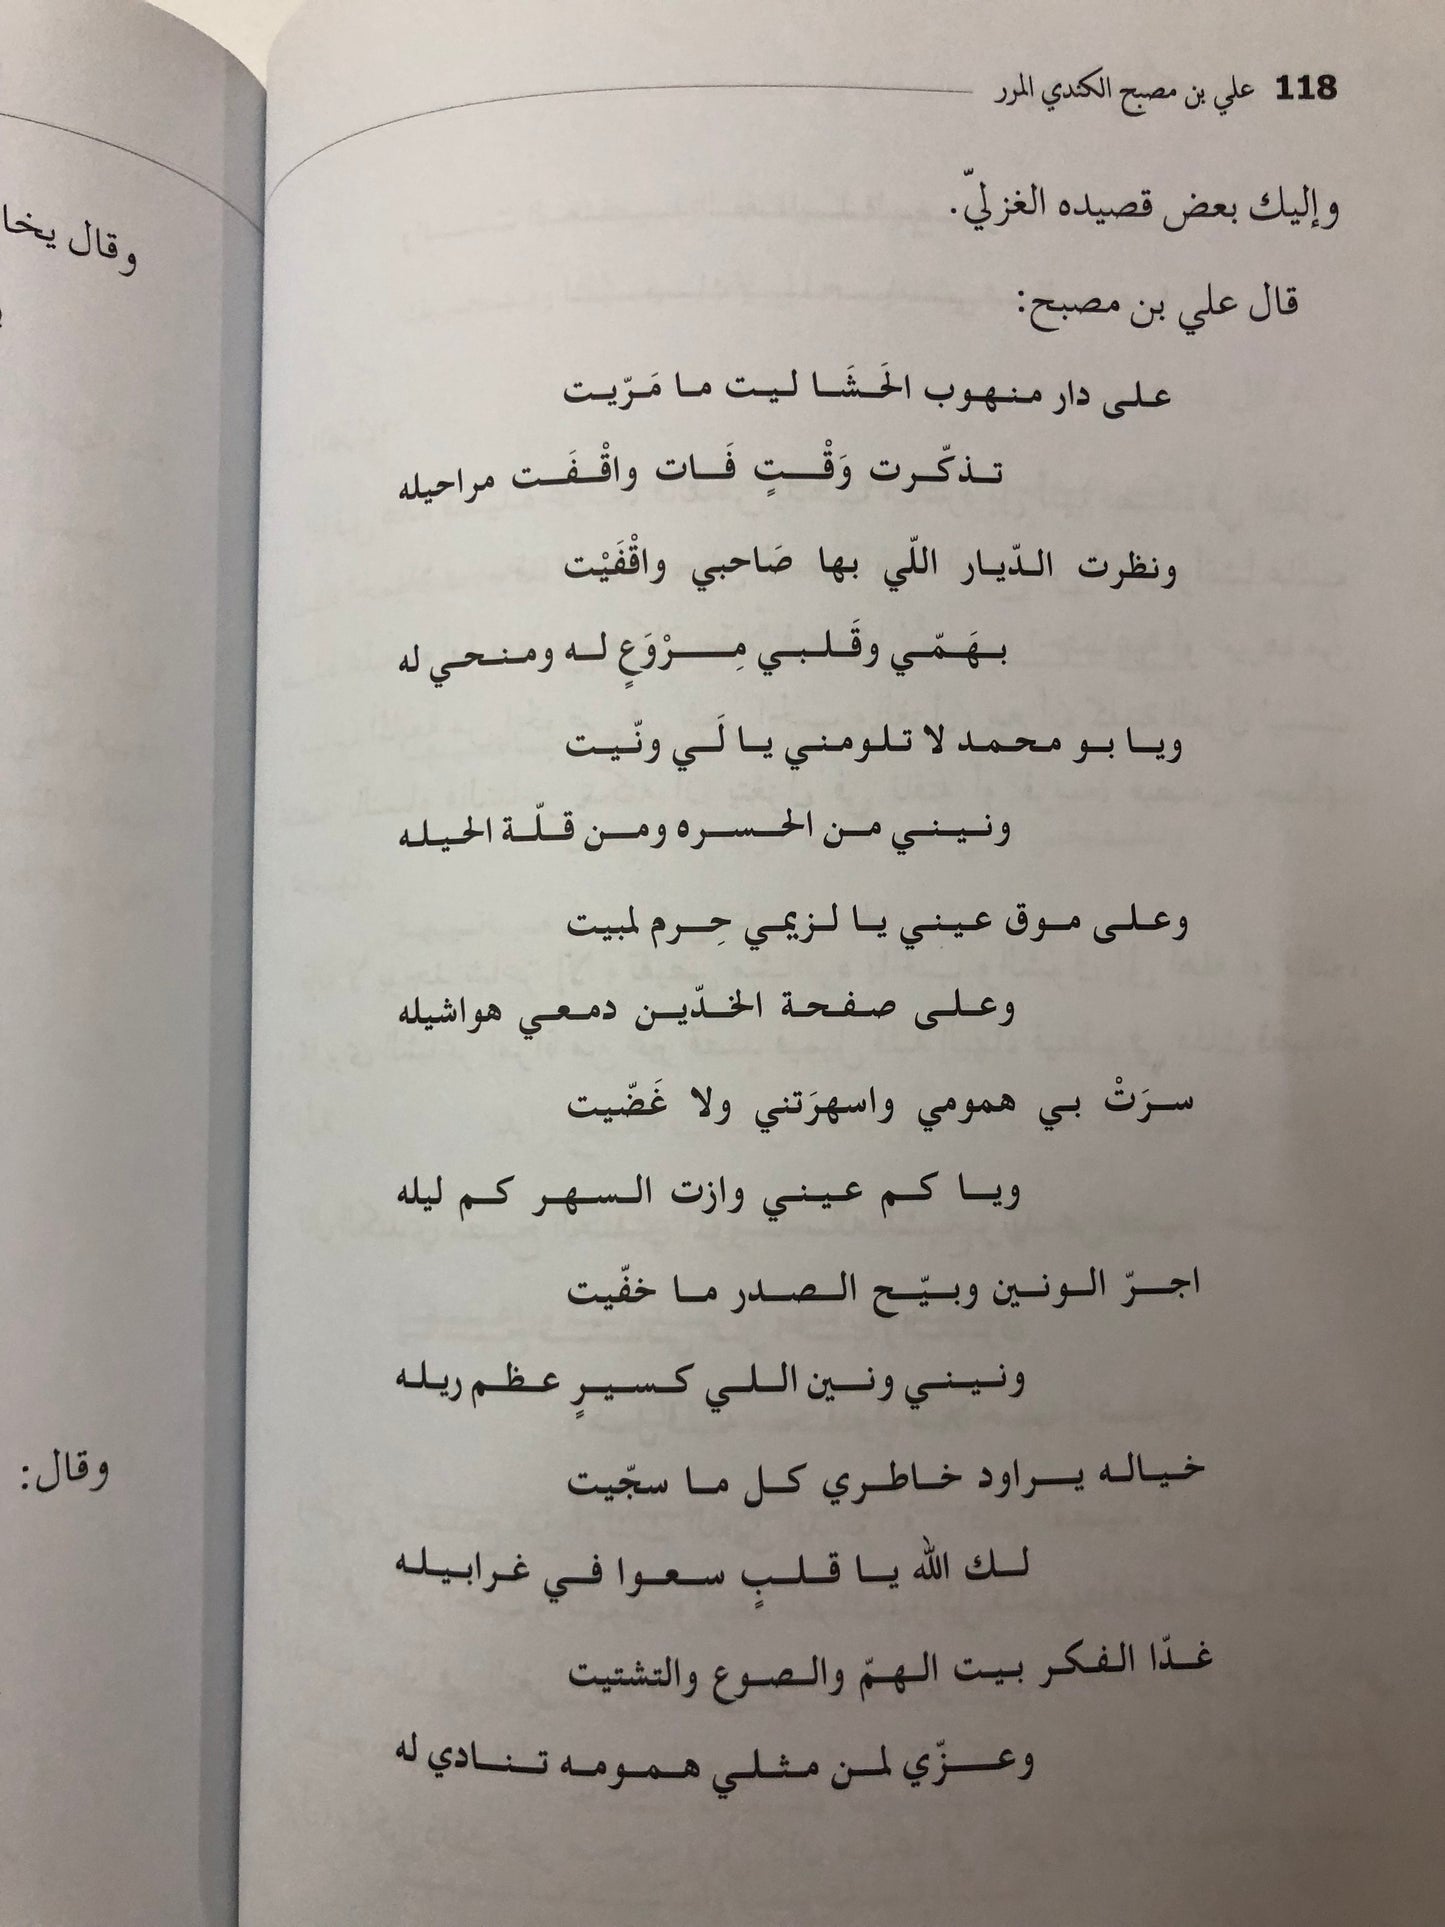 118 علي بن مصبح الكندي المرر
وإليك بعض قصيده الغزليّ.
قال علي بن مصبح:
على دار منهوب الحَشَا ليت ما مَرّيت
تذكّرت وَقْتٍ فَات واقْفَت مراحيله
ونظرت الدّيار اللّي بها صَاحبي واقْفَيْت
بهَمّي وقَلبي مِرْوَعٍ له ومنحي له
ويا بو محمد لا تلومني يا لَي ونّيت
ونيني من الحسره ومن قلّة الحيله
وعلى موق عيني يا لزيمي حِرم لمبيت
وعلى صفحة الخدّين دمعي هواشيله
سرَتْ بي همومي واسهرَتني ولا غَضّيت
ويا كم عيني وازت السهر كم ليله
اجرّ الونين وبيّح الصدر ما خفّيت
ونيني ونين اللي كسيرٍ عظم ريله
خياله يراود خاطري كل ما سجّيت
لك الله يا قلبٍ سعوا في غرابيله
غدّا الفكر بيت الهمّ والصوع والتشتيت
وعزّي لمن مثلي همومه تنادي له
وقال يخا
وقال: